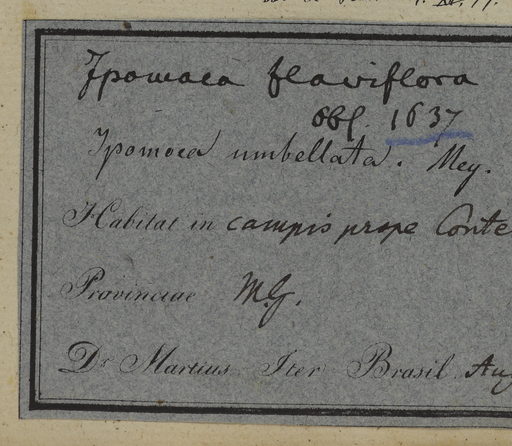 Ipomoea flaviflora
obs. 1637
Ipomoea umbellata. Mey.
Habitat in campis prope Conte
Provinciae M.G.
Dr Martius Iter Brasil. Aug